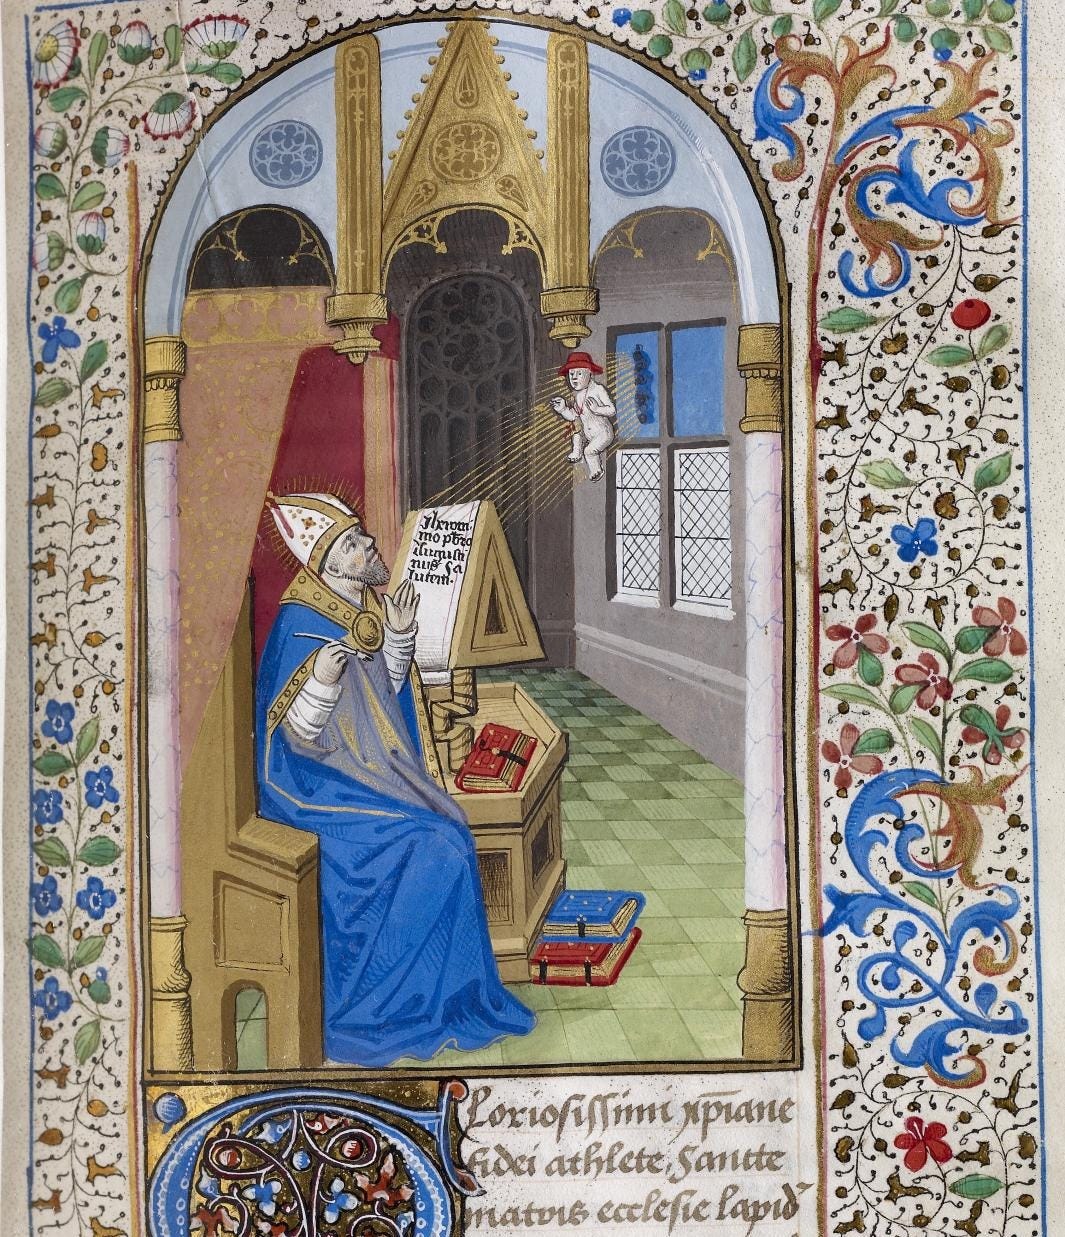 Iheroni
mo p̄bro
Augusti
nus sa
lutem.
Gloriosissimi xp̄iane
fidei athlete, Sancte
matris ecclesie lapid